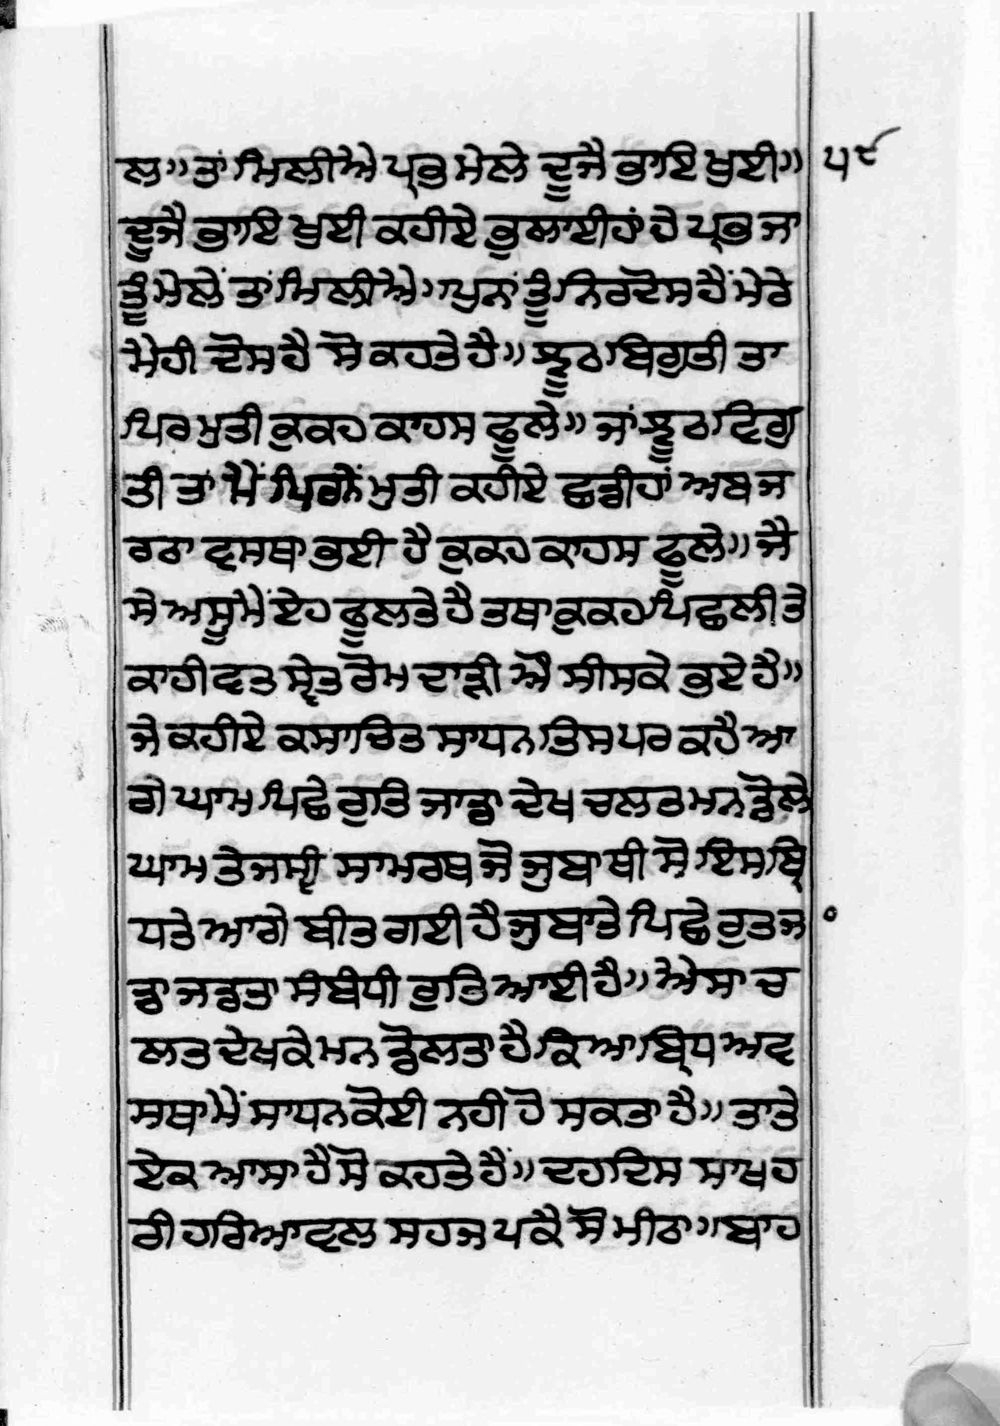 ਲ॥ਤਾਂ ਮਿਲੀਐ ਪ੍ਰਭ ਮੇਲੇ ਦੂਜੈ ਭਾਇ ਖੁਈ॥ ੫੯
ਦੂਜੈ ਭਾਇ ਖੁਈ ਕਹੀਏ ਭੂਲਾਈਹਾਂ ਹੇ ਪ੍ਰਭ ਜਾ
ਤੂੰ ਮੇਲੇਂ ਤਾਂ ਮਿਲੀਐ॥ਪੁਨਾਂ ਤੂੰ ਨਿਰਦੋਸ ਹੈਂ ਮੇਰੇ
ਮੇਹੀ ਦੋਸ ਹੈ ਸੋ ਕਹਤੇ ਹੈ॥ ਝੂਠ ਬਿਗੁਤੀ ਤਾ
ਪਿਰ ਮੁਤੀ ਕੁਕਹ ਕਾਹਸ ਫੂਲੇ॥ ਜਾਂ ਝੂਠ ਵਿਗੁ
ਤੀ ਤਾਂ ਮੈਂ ਪਿਰਨੇਂ ਮੁਤੀ ਕਹੀਏ ਛਡੀਹਾਂ ਅਬ ਜ
ਰਠਾ ਵਸਥਾ ਭਈ ਹੈ ਕੁਕਹ ਕਾਹਸ ਫੂਲੇ॥ ਜੈ
ਸੇ ਅਸੂਮੈਂ ਏਹ ਫੂਲਤੇ ਹੈ ਤਥਾ ਕੁਕਹ ਪਿਛਲੀ ਤੇ
ਕਾਹੀ ਵਤ ਸ੍ਵੇਤ ਰੋਮ ਦਾੜੀ ਔ ਸੀਸਕੇ ਭਏ ਹੈ॥
ਜੇ ਕਹੀਏ ਕਸਾਚਿਤ ਸਾਧਨ ਤਿਸ ਪਰ ਕਹੈ ਆ
ਗੇ ਘਾਮ ਪਿਛੇ ਰੁਤਿ ਜਾਡਾ ਦੇਖ ਚਲਤ ਮਨ ਡੋਲੇ
ਘਾਮ ਤੇਜਸ੍ਵੀ ਸਾਮਰਥ ਜੋ ਜੁਬਾ ਥੀ ਸੋ ਇਸ ਬ੍ਰਿ
ਧਤੇ ਆਗੇ ਬੀਤ ਗਈ ਹੈ ਜੁਬਾਤੇ ਪਿਛੇ ਰੁਤ ਜ
ਡਾ ਜਡਤਾ ਸੰਬੰਧੀ ਰੁਤਿ ਆਈ ਹੈ॥ ਐਸਾ ਚ
ਲਤ ਦੇਖਕੇ ਮਨ ਡੋਲਤਾ ਹੈ ਕਿਆ ਬ੍ਰਿਧ ਅਵ
ਸਥਾ ਮੇਂ ਸਾਧਨ ਕੋਈ ਨਹੀਂ ਹੋ ਸਕਤਾ ਹੈ॥ ਤਾਤੇ
ਏਕ ਆਸਾ ਹੈ ਸੋ ਕਹਤੇ ਹੈਂ॥ ਦਹਦਿਸ ਸਾਖ ਹ
ਰੀ ਹਰਿਆਵਲ ਸਹਜ ਪਕੈ ਸੋ ਮੀਠਾ॥ਬਾਹ